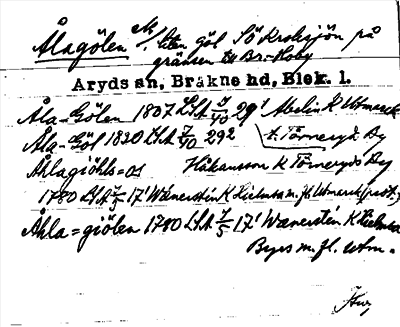 Ålagölen N/. liten göl SÖ Kroksjön på
gränsen till Br-Hoby
Aryds sn, Bräkne hd, Blek. l.
Åla-Gölen 1807 LSA 29' Abelin K Utmark
Åla-Göl 1820 LSA 7/40 292 t. Törneryd By
Åhlagiöhls= Håkansson K Törneryds By
1780 LSA 7/5 17' Wænerstén K Hielmsa m. fl. Utmark
Åhla=giölen 1780 LSA 7/5 17' Wænerstén K Hielmsa
Byss m. fl. utm.